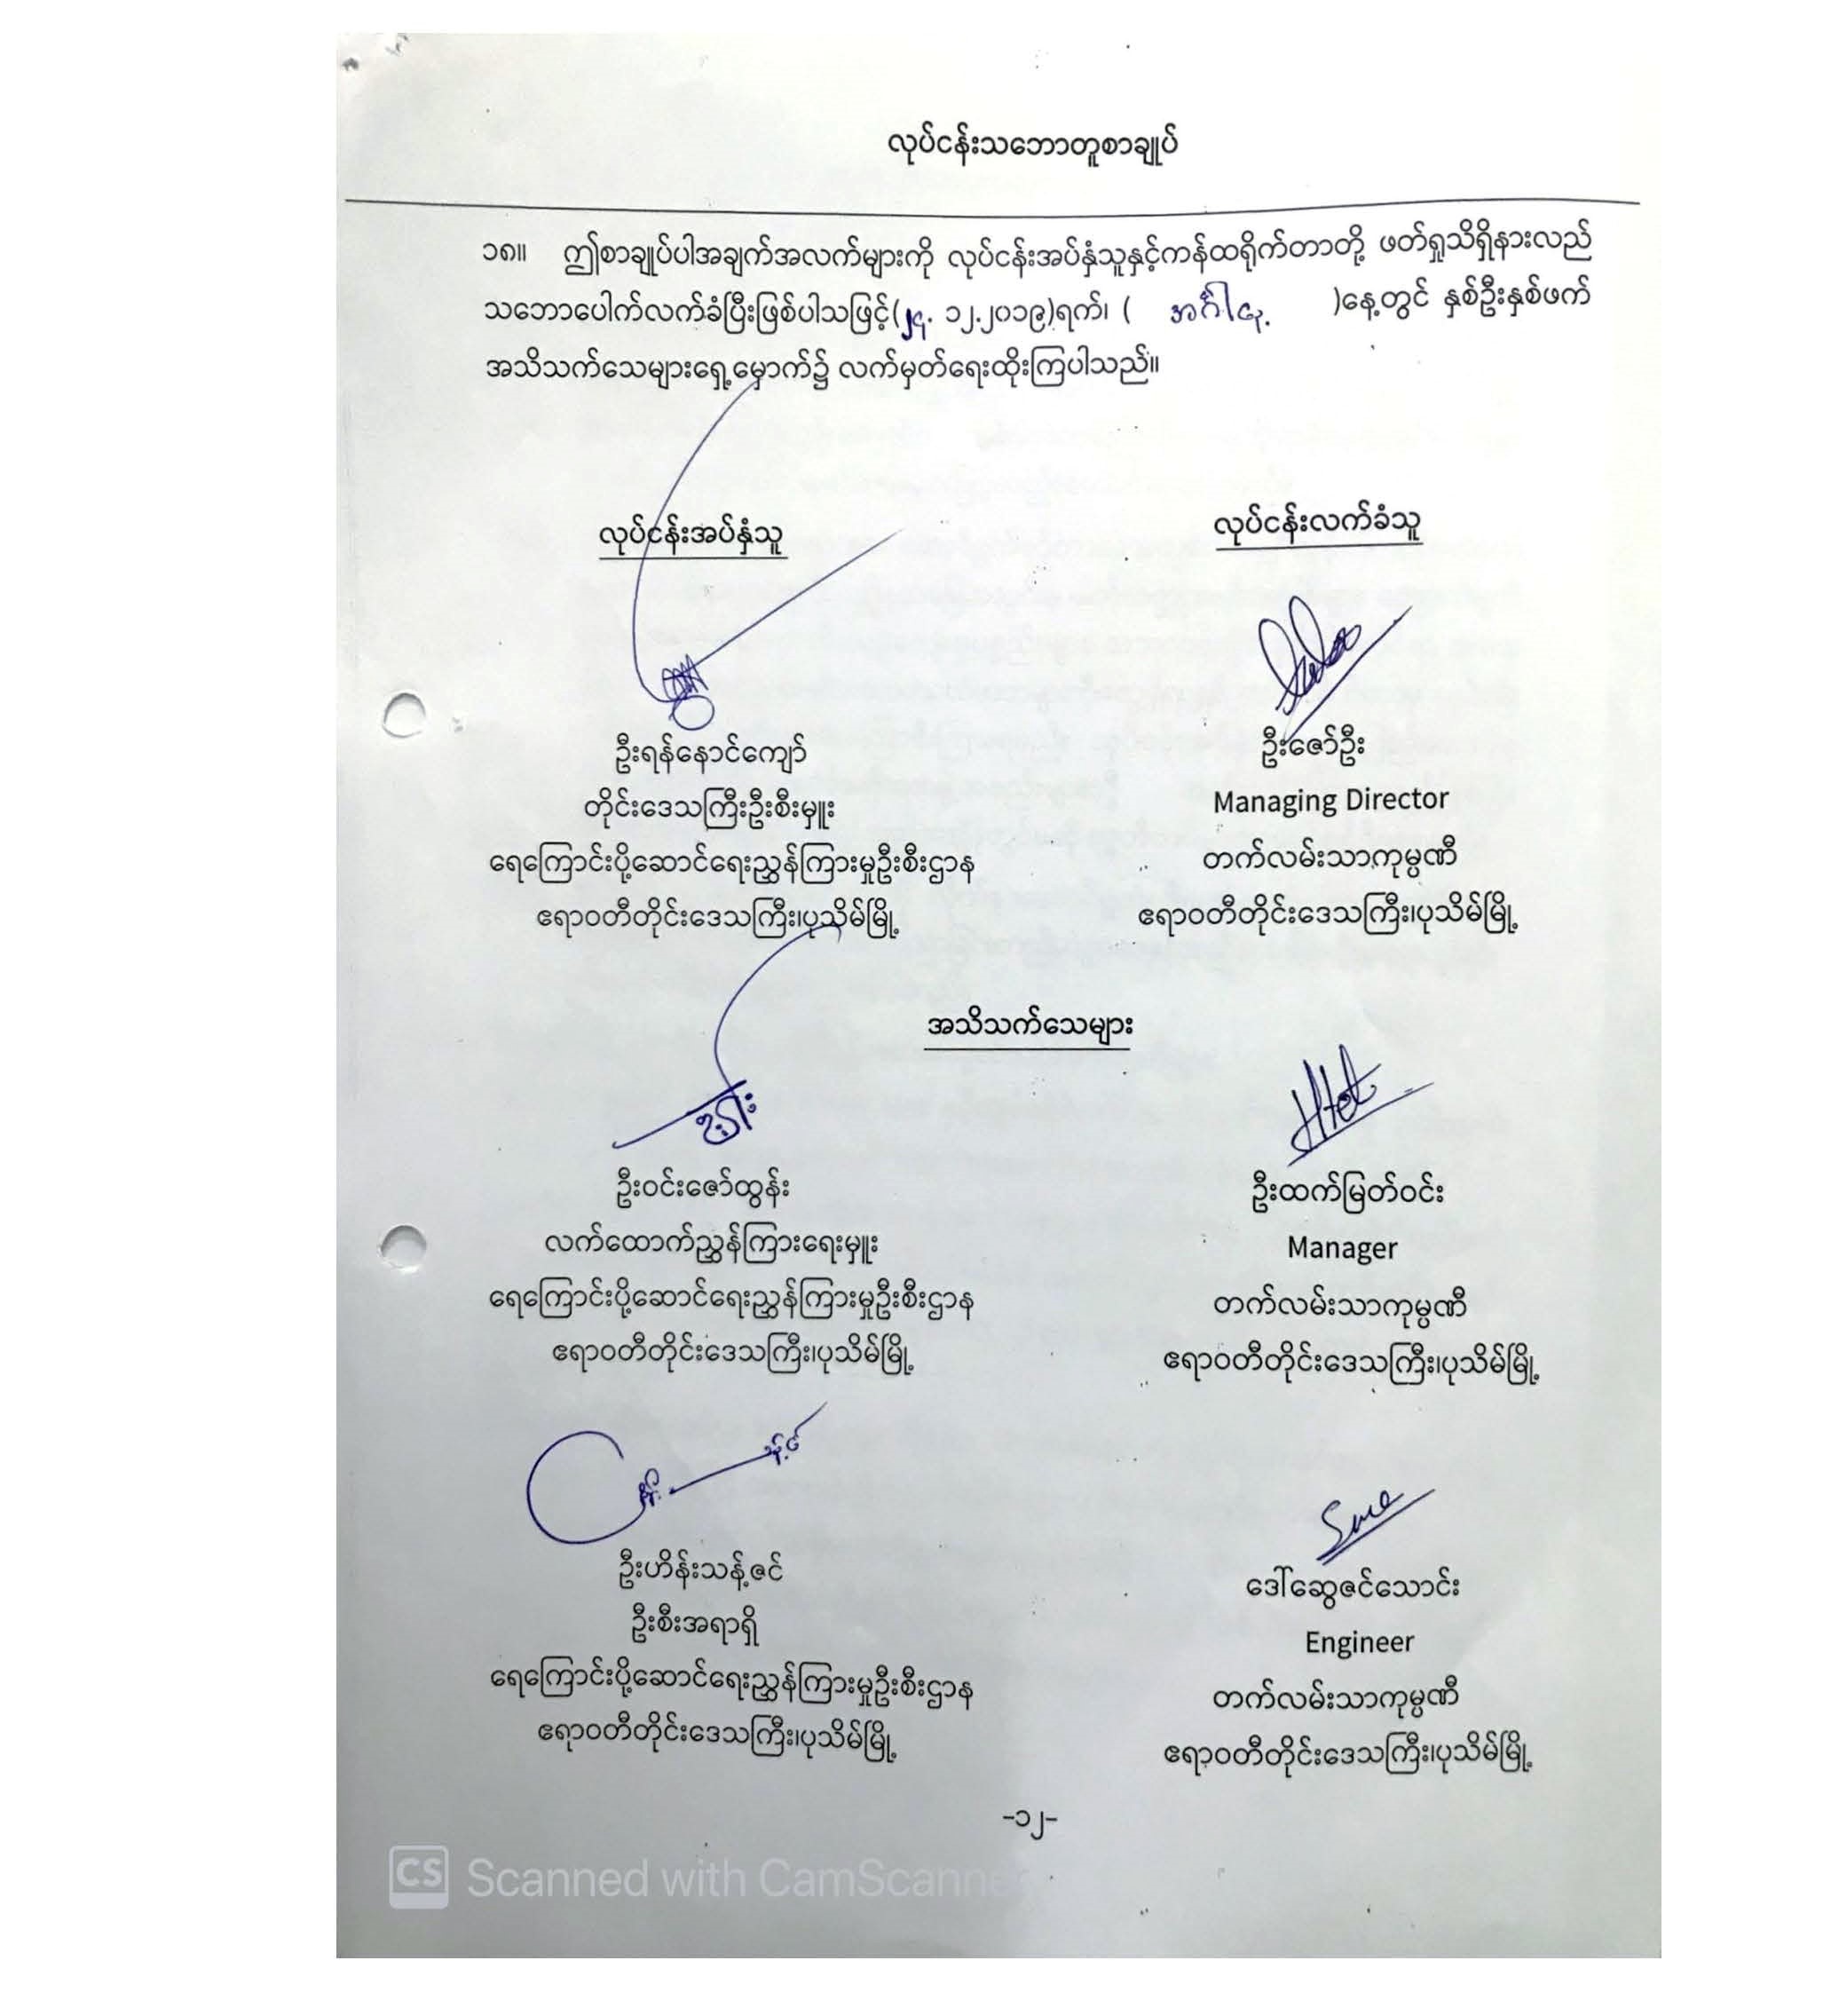 လုပ်ငန်းသဘောတူစာချုပ်
၁၈။ ဤစာချုပ်ပါအချက်အလက်များကို လုပ်ငန်းအပ်နှံသူနှင့်ကန်ထရိုက်တာတို့ ဖတ်ရှုသိရှိနားလည်
သဘောပေါက်လက်ခံပြီးဖြစ်ပါသဖြင့်(၂၄. ၁၂.၂၀၁၉)ရက်၊ ( အင်္ဂါနေ့ )နေ့တွင် နှစ်ဦးနှစ်ဖက်
အသိသက်သေများရှေ့မှောက်၌ လက်မှတ်ရေးထိုးကြပါသည်။
လုပ်ငန်းအပ်နှံသူ
ဦးရန်နောင်ကျော်
တိုင်းဒေသကြီးဦးစီးမှူး
ရေကြောင်းပို့ဆောင်ရေးညွှန်ကြားမှုဦးစီးဌာန
ဧရာဝတီတိုင်းဒေသကြီး၊ပုသိမ်မြို့
လုပ်ငန်းလက်ခံသူ
ဦးဇော်ဦး
Managing Director
တက်လမ်းသာကုမ္ပဏီ
ဧရာဝတီတိုင်းဒေသကြီး၊ပုသိမ်မြို့
အသိသက်သေများ
ဦးဝင်းဇော်ထွန်း
လက်ထောက်ညွှန်ကြားရေးမှူး
ရေကြောင်းပို့ဆောင်ရေးညွှန်ကြားမှုဦးစီးဌာန
ဧရာဝတီတိုင်းဒေသကြီး၊ပုသိမ်မြို့
Htet
ဦးထက်မြတ်ဝင်း
Manager
တက်လမ်းသာကုမ္ပဏီ
ဧရာဝတီတိုင်းဒေသကြီး၊ပုသိမ်မြို့
ဦးဟိန်းသန့်ဇင်
ဦးစီးအရာရှိ
ရေကြောင်းပို့ဆောင်ရေးညွှန်ကြားမှုဦးစီးဌာန
ဧရာဝတီတိုင်းဒေသကြီး၊ပုသိမ်မြို့
ဒေါ်ဆွေဇင်သောင်း
Engineer
တက်လမ်းသာကုမ္ပဏီ
ဧရာဝတီတိုင်းဒေသကြီး၊ပုသိမ်မြို့
-၁၂-
CS Scanned with CamScanne